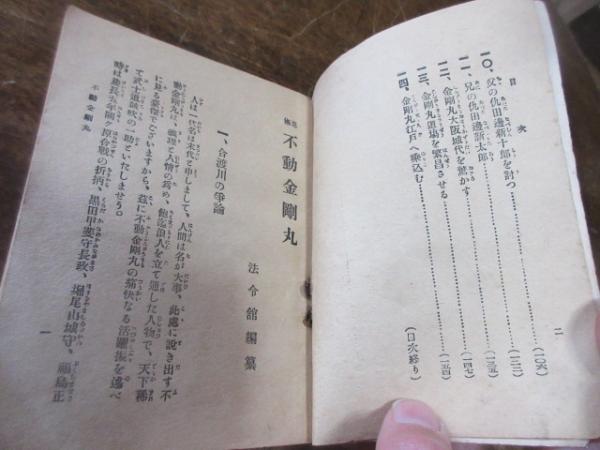 目次
二
一〇、父の仇田邊新十郎を討つ…………(一〇六)
一一、兄の仇田邊新太郎…………(一二三)
一二、金剛丸大阪城代を驚かす…………(一三五)
一三、金剛丸道場を繁昌させる…………(一四七)
一四、金剛丸江戸へ乘込む…………(一五四)
(目次終り)
不動金剛丸
法令館編纂
一、合渡川の爭論
人は一代名は末代と申しまして、人間は名が大事、此處に說き出す不
動金剛丸は、義理と人情の爲め、飽迄浪人を立て通した人物で、天下稀
に見る豪傑でございますから、茲に不動金剛丸の痛快なる活躍振を述べ
て武士道鼓吹の一助といたしませう。
時は慶長五年關ケ原合戰の折柄、黑田甲斐守長政、堀尾山城守、福島正
不動金剛丸
一